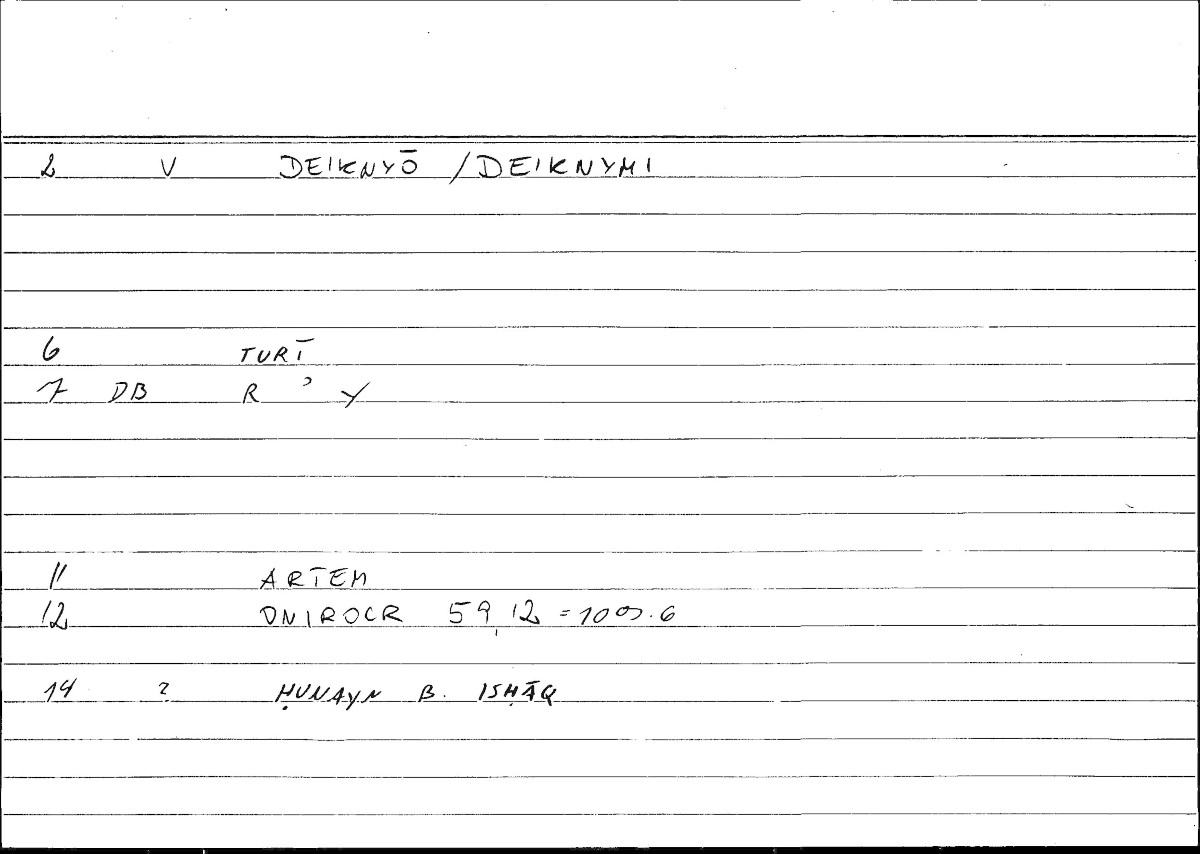 2 V DEIKNYŌ / DEIKNYMI
6 TURĪ
7 DB R ʾ Y
11 ARTEM
12 ONIROCR 59,12 = 109.6
14 ? ḤUNAYN B. ISḤĀQ